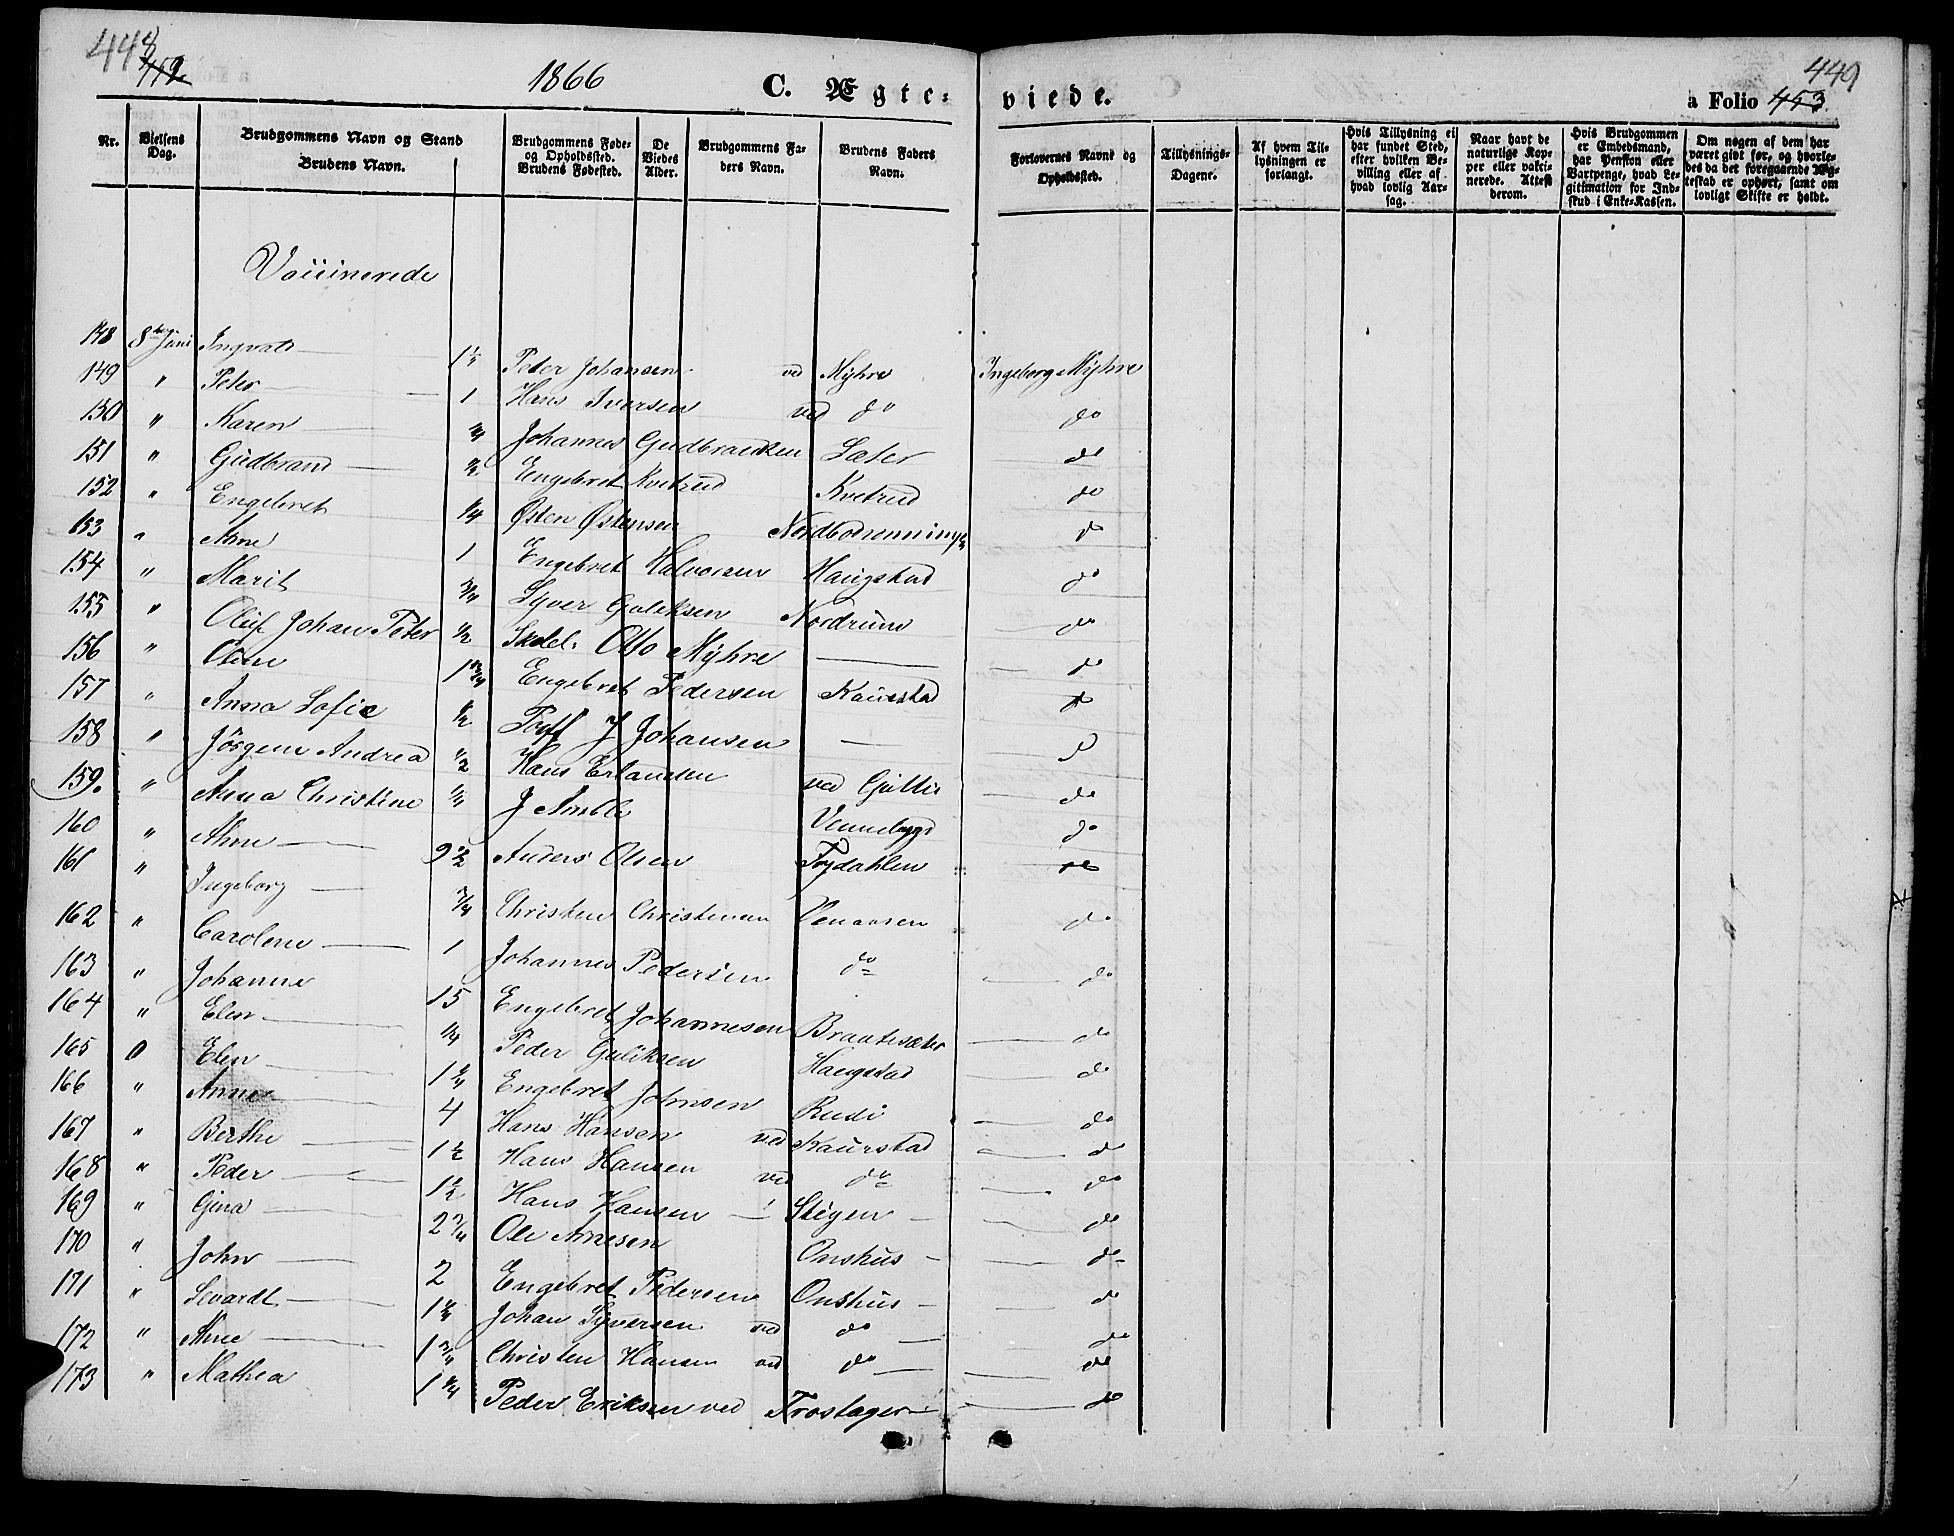 448 452
1866
C. Ægte- viede.
449
a Folio 453.
Nr.
Vielsens Dag.
Brudgommens Navn og Stand
Brudens Navn.
Brudgommens Føde- og Opholdssted. Brudens Fødested.
De Viedes Alder.
Brudgommens Fa- ders Navn.
Brudens Faders Navn.
Forlovernes Navne og Opholdssted.
Tillysnings- Dagene.
Af hvem Til- lysningen er forlangt.
Hvis Tillysning ei har fundet Sted, efter hvilken Be- villing eller af hvad lovlig Aar- sag.
Naar havt de naturlige Kop- per eller vakci- nerede. Attest derom.
Hvis Brudgommen er Embedsmand, har Pension eller Vartpenge, hvad Le- gitimation for Ind- skud i Enke-Kassen.
Om nogen af dem har været givt før, og hvorle- des da det foregaaende Æg- teskab er ophørt, samt om lovligt Skifte er holdt.
148 8 Juni Ingvald Peter Johansen ved Myhre Ingeborg Myhre
149 " Peter 1 Hans Iversen ved do do
150 " Karen Johannes Gudbrandsen Sæter do
151 " Gudbrand 1/2 Engebret Kvetrud Kvetrud do
152 " Engebret 1/4 Østen Østensen do
153 " Anne 1 Engebret Halvorsen Haugstad do
154 " Marit 3/4 Syver Guliksen Nordrum do
155 " Oluf Johan Peter 1/2 Otto Myhre do
156 " Oline 1 3/4 Engebret Pedersen Kaurstad do
157 " Anna Sofie 1/2 J Johansen do
158 " Jörgine Andrea 1/2 Hans Erlandsen ved do
159. " Anna Christine J Amble Vennebygd do
160 " Anne 9 1/2 Anders Olsen do
161 " Ingeborg 3/4 Christen Christensen Venaasen do
162 " Caroline 1 Johannes Pedersen do do
163 " Johanne 15 Engebret Johannesen Braatesæter do
164 " Elen Peder Guliksen Haugstad do
165 0 Elen Engebret Johnsen Rudi do
166 " Anne 4 Hans Hansen ved Kaurstad do
167 " Berthe 1 1/2 Hans Hansen ved do do
168 " Peder 1 1/2 Hans Hansen Stigen do
169 " Gina 2 3/4 Ole Arnesen Onshus do
170 " John 2 Engebret Pedersen Onshus do
171 " Sivardt Johan Syversen ved do do
172 " Anne 1 3/4 Christen Hansen ved do do
173 " Mathea 1 1/4 Peder Eriksen ved do